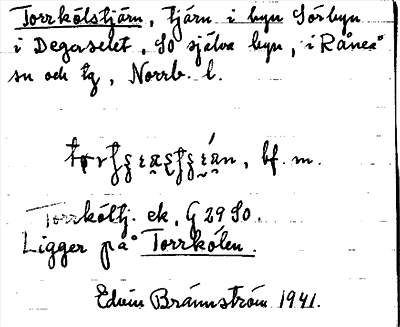 Torrkölstjärn, tjärn i byn Sörbyn
i Degerselet, SO själva byn, i Råneå
sn och tg, Norrb. l.
bf. m.
Torrköltj. ek, G 29 SO.
Ligger på Torrkölen.
Edvin Brännström 1941.